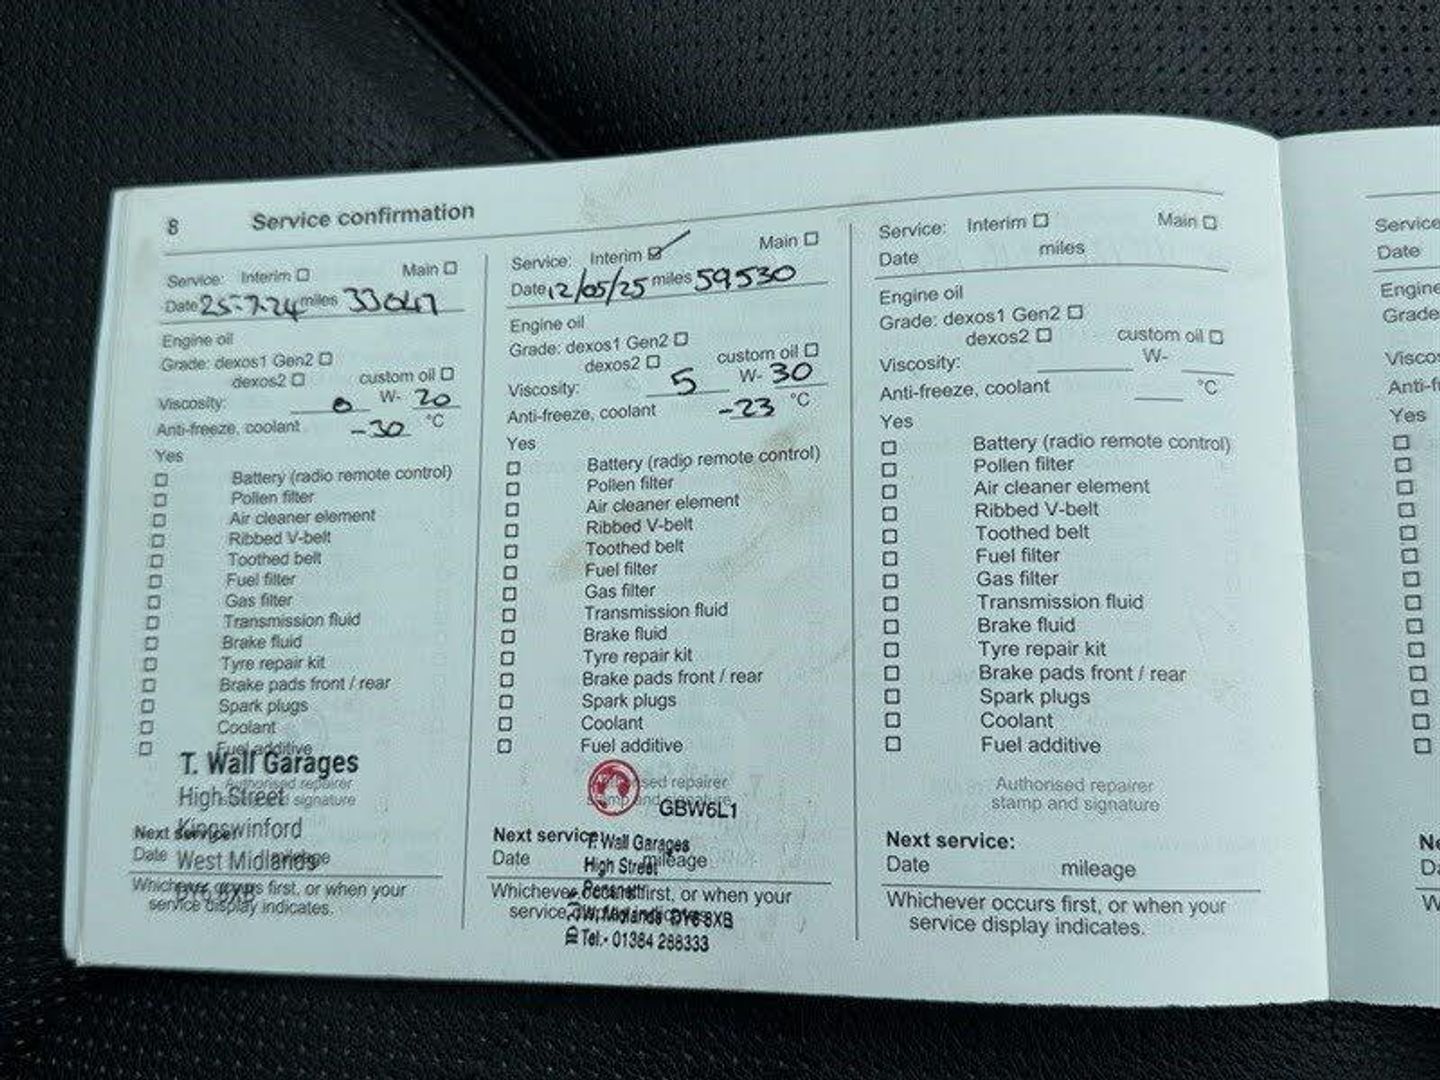 8 Service confirmation
Service: Interim Main
Date 25-7-24 miles 33047
Engine oil
Grade: dexos1 Gen2
dexos2 custom oil
Viscosity: 0 W- 20
Anti-freeze, coolant -30 °C
Yes
Battery (radio remote control)
Pollen filter
Air cleaner element
Ribbed V-belt
Toothed belt
Fuel filter
Gas filter
Transmission fluid
Brake fluid
Tyre repair kit
Brake pads front / rear
Spark plugs
Coolant
Fuel additive
T. Wall Garages
Authorised repairer
High Street
signature
Kingswinford
Next service:
Date West Midlands
Whichever occurs first, or when your
service display indicates.
Service: Interim Main
Date 12/05/25 miles 59530
Engine oil
Grade: dexos1 Gen2
dexos2 custom oil
Viscosity: 5 W- 30
Anti-freeze, coolant -23 °C
Yes
Battery (radio remote control)
Pollen filter
Air cleaner element
Ribbed V-belt
Toothed belt
Fuel filter
Gas filter
Transmission fluid
Brake fluid
Tyre repair kit
Brake pads front / rear
Spark plugs
Coolant
Fuel additive
repairer
stamp and signature
GBW6L1
Next service:
T. Wall Garages
Date mileage
High Street
Whichever occurs first, or when your
Pensnett
service display indicates.
W. Midlands DY6 8XB
Tel:- 01384 288333
Service: Interim Main
Date miles
Engine oil
Grade: dexos1 Gen2
dexos2 custom oil
Viscosity: W-
Anti-freeze, coolant °C
Yes
Battery (radio remote control)
Pollen filter
Air cleaner element
Ribbed V-belt
Toothed belt
Fuel filter
Gas filter
Transmission fluid
Brake fluid
Tyre repair kit
Brake pads front / rear
Spark plugs
Coolant
Fuel additive
Authorised repairer
stamp and signature
Next service:
Date mileage
Whichever occurs first, or when your
service display indicates.
Service
Date
Engine
Grade:
Yes